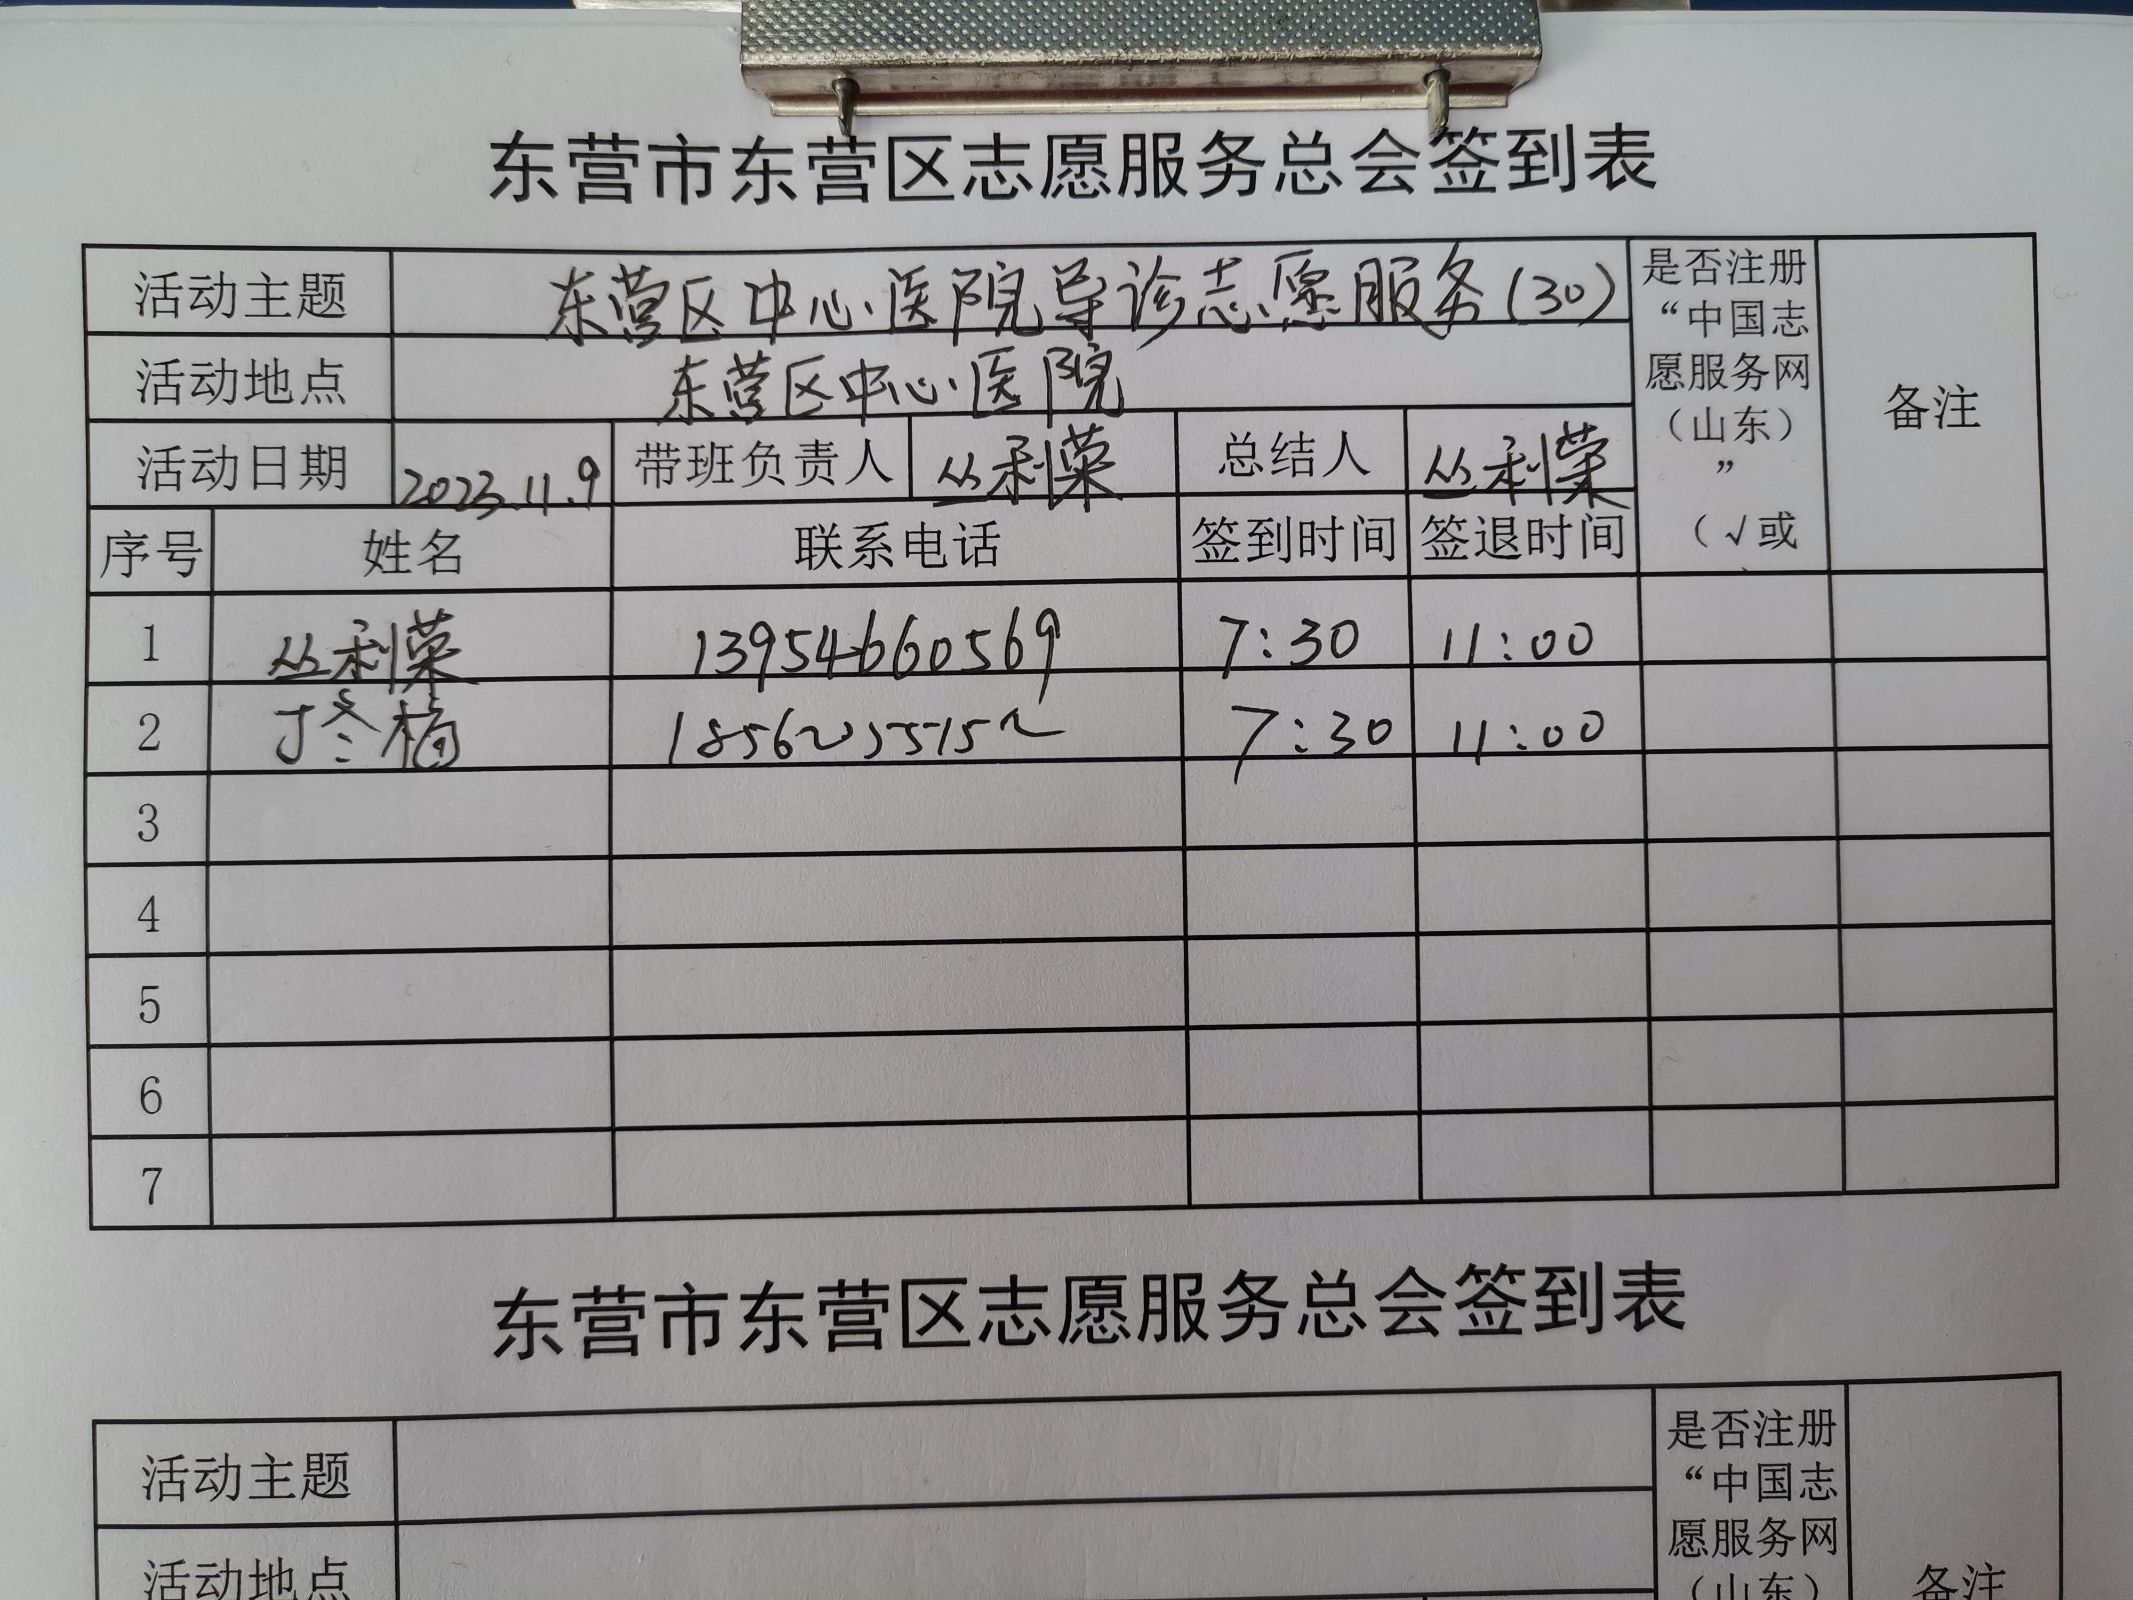 东营市东营区志愿服务总会签到表
活动主题 东营区中心医院导诊志愿服务(30) 是否注册“中国志愿服务网（山东）”（√或 备注
活动地点 东营区中心医院
活动日期 2023.11.9 带班负责人 丛利荣 总结人 丛利荣
序号 姓名 联系电话 签到时间 签退时间
1 丛利荣 13954660569 7:30 11:00
2 丁冬梅 7:30 11:00
3
4
5
6
7
东营市东营区志愿服务总会签到表
活动主题 是否注册“中国志愿服务网（山东） 备注
活动地点